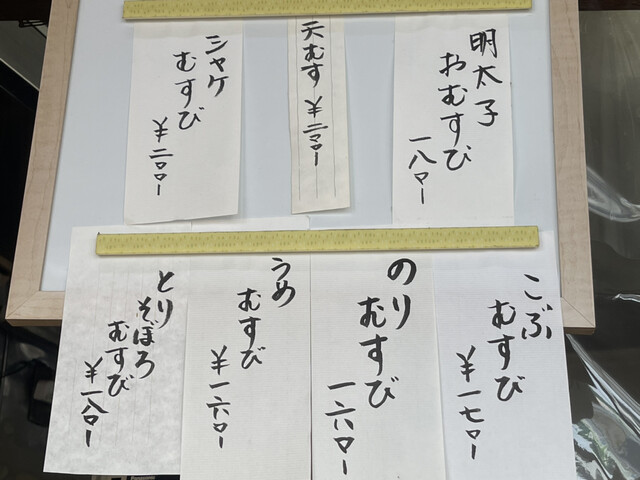 明太子
おむすび
一八〇ー
天むす ¥二〇〇ー
シャケ
むすび
¥二〇〇ー
こぶ
むすび
¥一七〇ー
のり
むすび
一六〇ー
うめ
むすび
¥一六〇ー
とり
そぼろ
むすび
¥一八〇ー